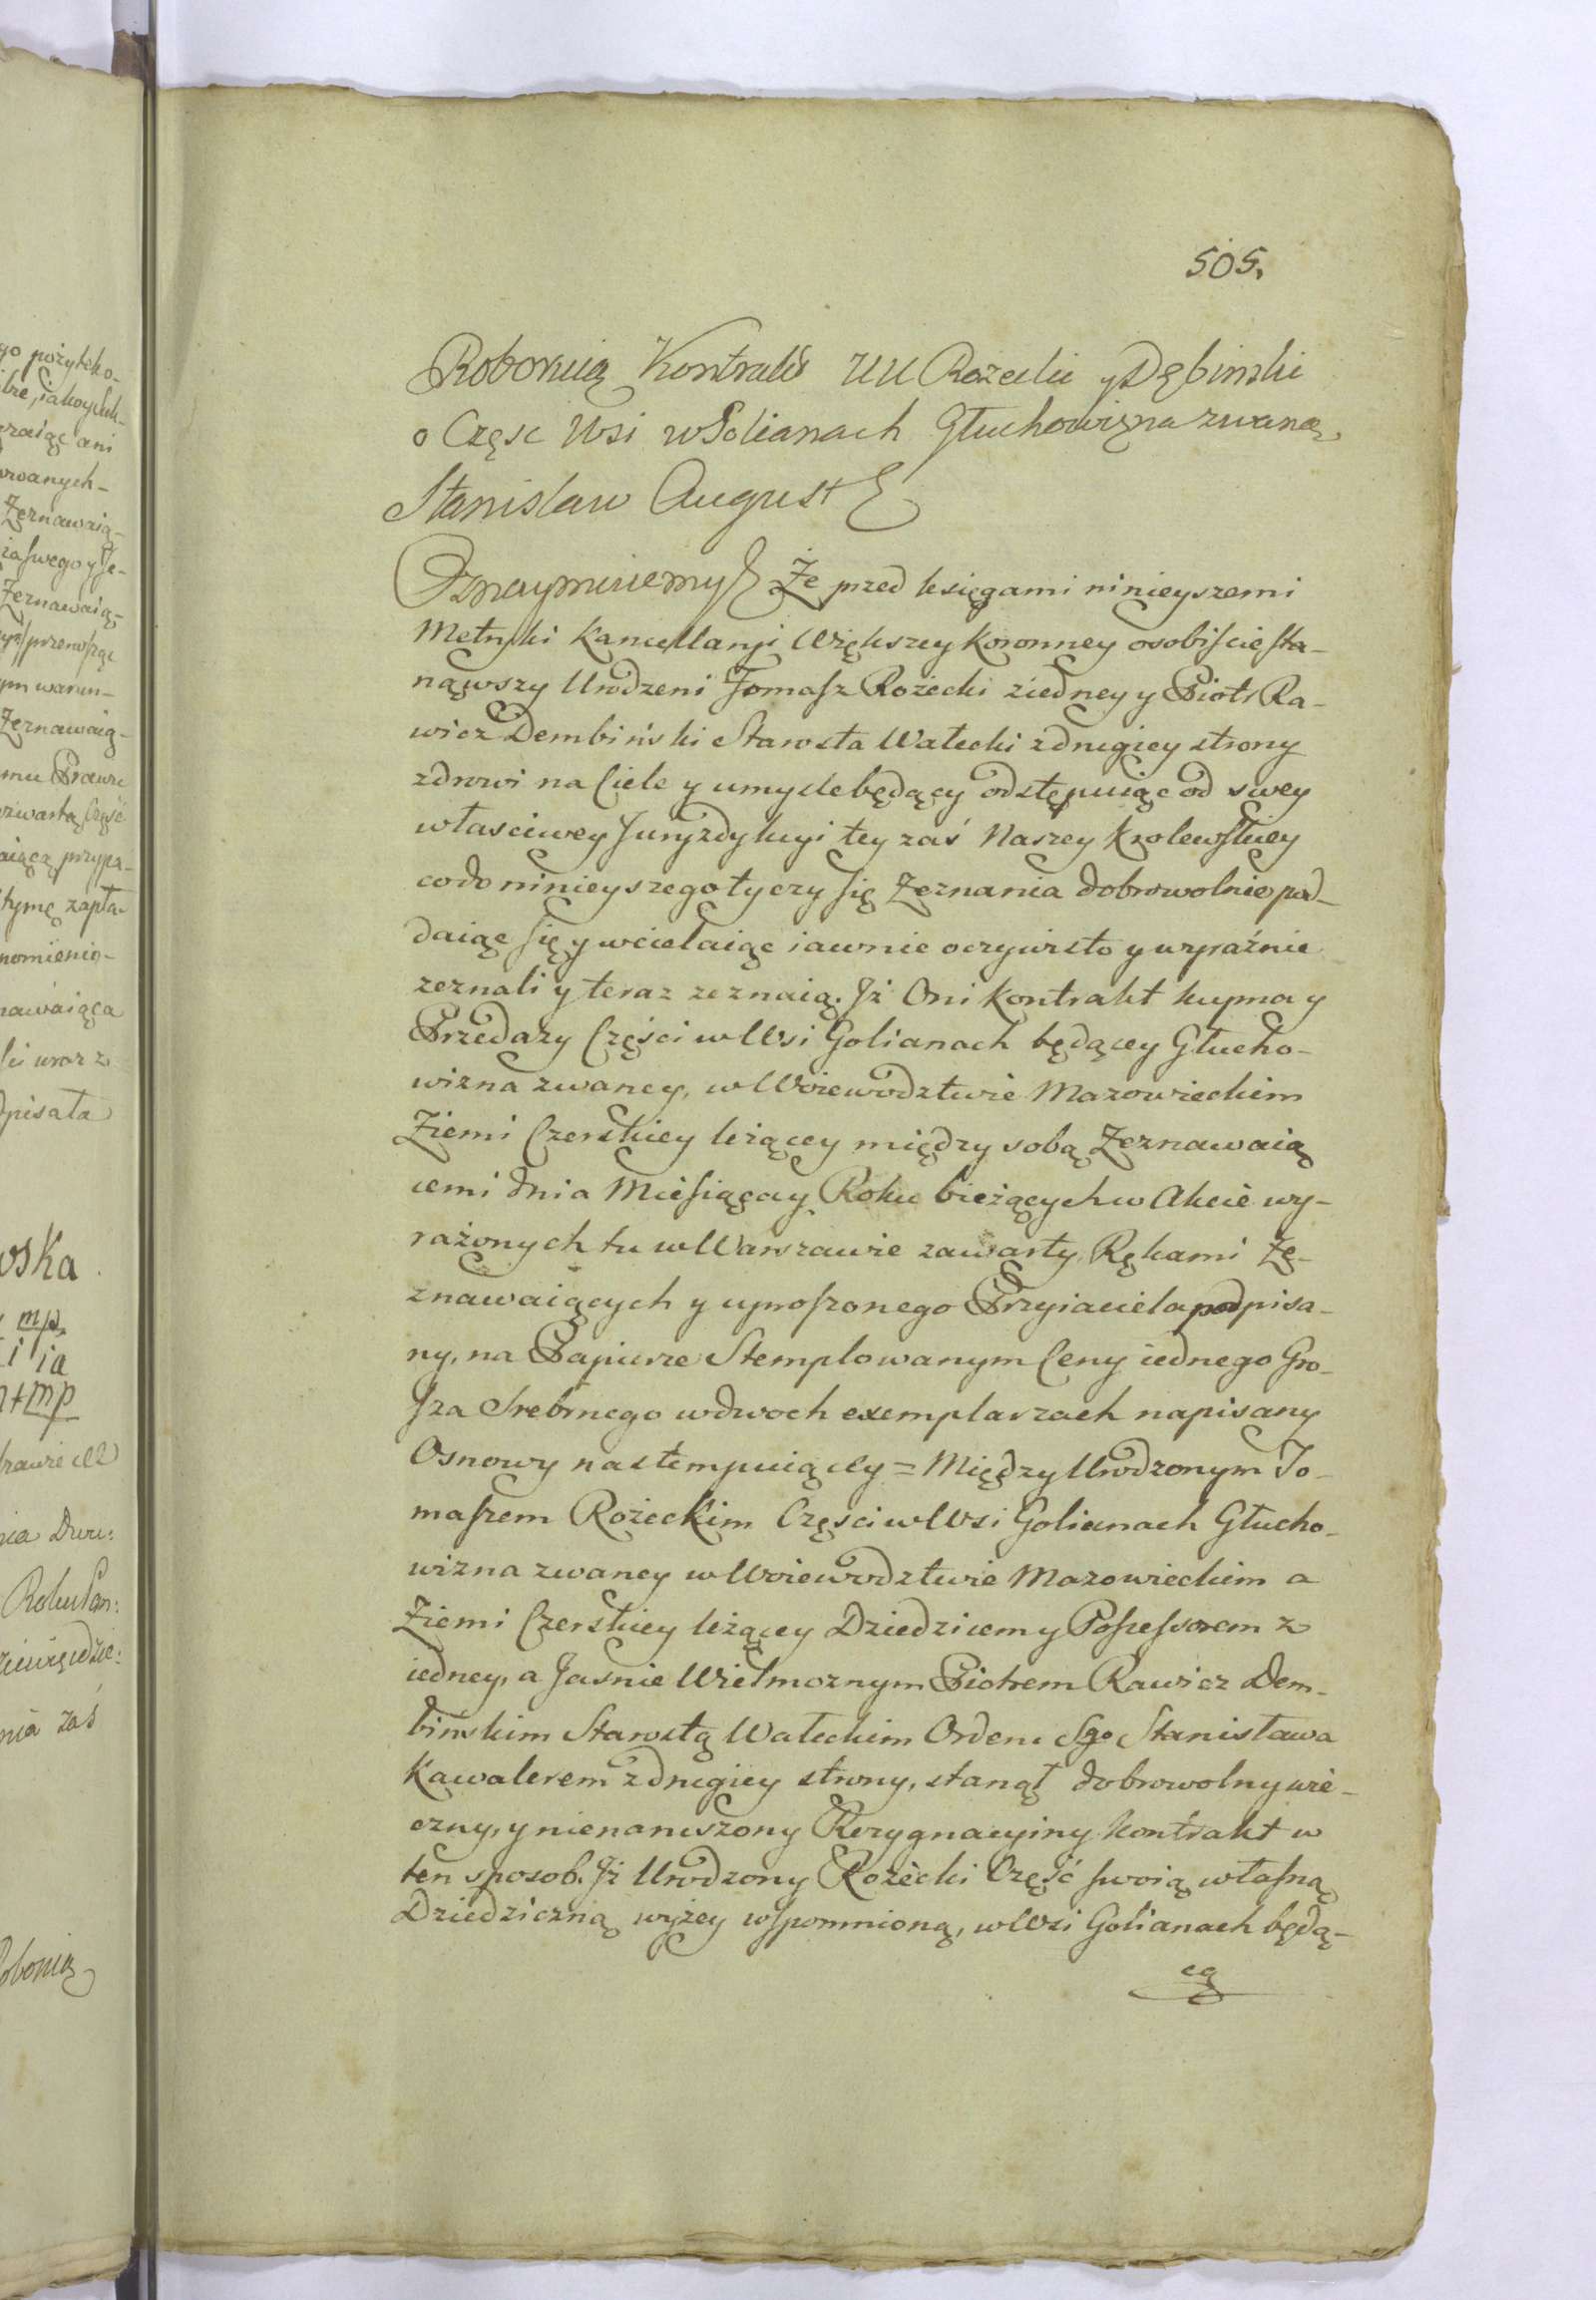 505.
Roboruią Kontrakt UU Rozecki y Dębinski
o Częsc Wsi w Golianach Głuchowizna zwaną.
Stanislaw August
Oznaymuiemy Że przed księgami ninieyszemi
Metryki Kancellaryi Większey Koronney osobiście sta-
nąwszy Urodzeni Tomasz Rożecki ziedney y Piotr Ra-
wicz Dembiński Starosta Wałecki zdrugiey strony
zdrowi na Ciele y umyśle będący odstępuiąc od swey
własciwey Juryzdykcyi tey zaś Naszey Krolewskiey
codo ninieyszego tyczy się Zeznania dobrowolnie pod-
daiąc się y wcielaiąc iawnie oczywisto y wyraźnie
zeznali y teraz zeznaią. Jż Oni Kontrakt kupna y
Przedaży Części w Wsi Golianach będącey Głucho-
wizna zwaney, w Woiewodztwie Mazowieckim
Ziemi Czerskiey leżącey między sobą Zeznawaią
cemi dnia Miesiąca y Roku bieżących w Akcie wy-
rażonych tu w Warszawie zawarty, Rękami Ze-
znawaiących y uproszonego Przyiaciela podpisa-
ny, na Papierze Stemplowanym Ceny iednego Gro-
sza Srebrnego wdwoch exemplarzach napisany
Osnowy nastempuiącey = Między Urodzonym To-
maszem Rożeckim Częsci w Wsi Golianach Głucho-
wizna zwaney w Woiewodztwie Mazowieckim a
Ziemi Czerskiey leżącey Dziedzicem y Possessorem z
iedney, a Jasnie Wielmoznym Piotrem Rawicz Dem-
binskim Starostą Wałeckim Orderu Sgo Stanisława
Kawalerem zdrugiey strony, stanął dobrowolny wie-
czny, y nienaruszony Rezygnacyiny Kontrakt w
ten sposob. Jż Urodzony Rożecki Część swoią własną
Dziedziczną wyżey wspomnioną, w Wsi Golianach będą-
cą